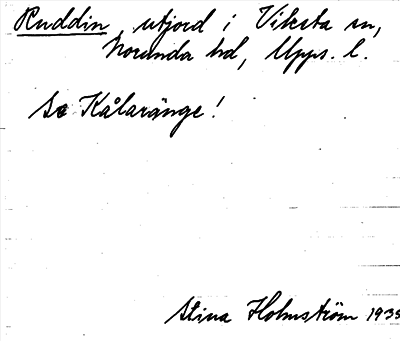 Ruddin, utjord i Viksta sn,
Norunda hd, Upps. l.
Se Kålaränge!
Stina Holmström 1935